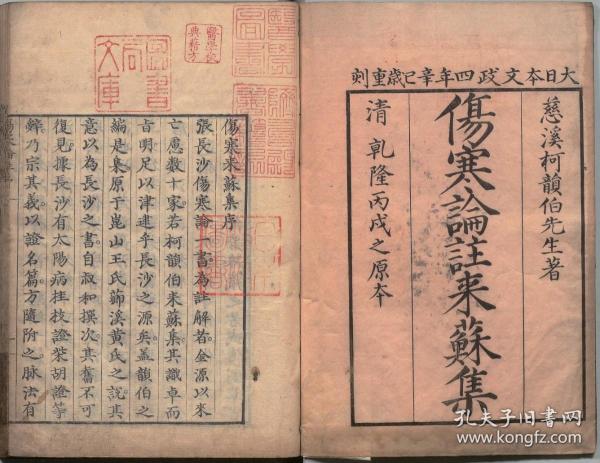 大日本文政四年辛巳歳重刺
慈溪柯韻伯先生著
傷寒論註来蘇集
清 乾隆丙戌之原本
傷寒来蘇集序
張長沙傷寒論一書為註解者金源以来
亡慮数十家若柯韻伯来蘇集其識卓而
旨明足以津逮乎長沙之源矣蓋韻伯之
編是集原于崑山王氏鄮溪黄氏之説其
意以為長沙之書自叔和撰次其舊不可
復見據長沙有太陽病桂枝證柴胡證等
辭乃宗其義以證名篇方隨附之脉法有
醫學校
典藉方
圖書
文庫
孔夫子旧书网
www.kongfz.com